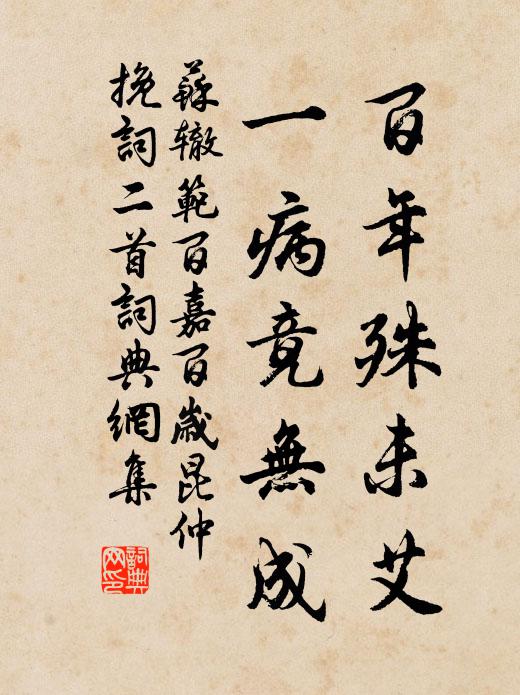 百年殊未艾
一病竟無成
蘇辙範百嘉百歲昆仲
挽詞二首詞典網集
詞典网印